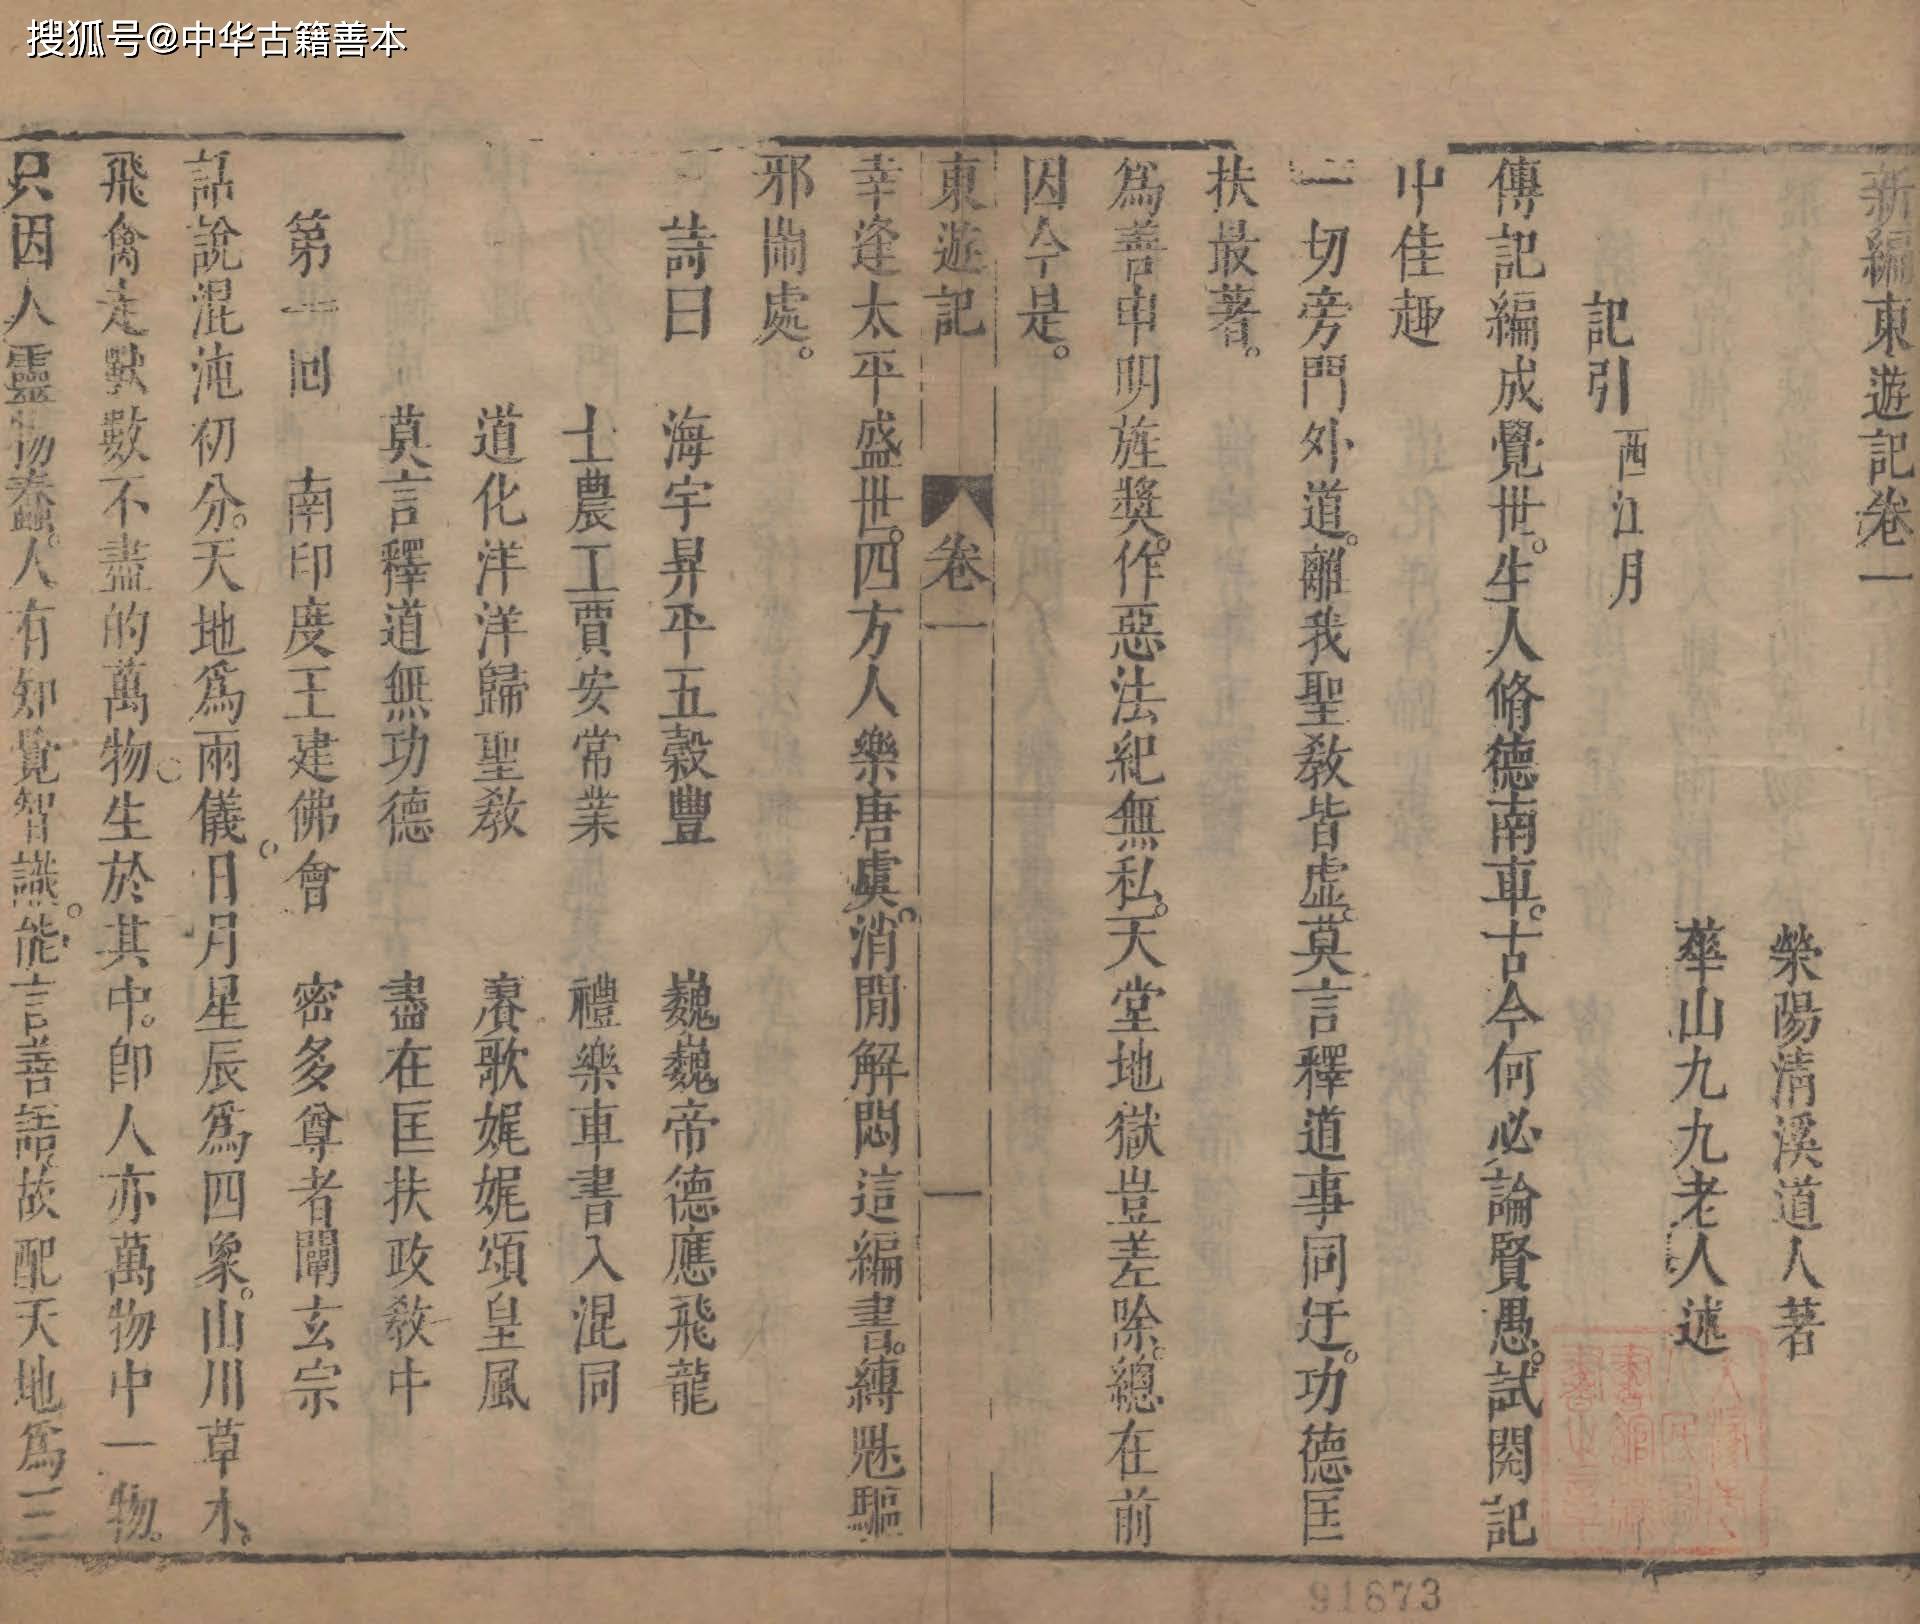 搜狐号@中华古籍善本
新編東遊記卷一
滎陽清溪道人著
華山九九老人述
記引 西江月
傳記編成覺世。生人脩德南車。古今何必論賢愚。試閱記
中佳趣
一切旁門外道。離我聖教皆虛。莫言釋道事同迂。功德匡
扶最著。
為善申明旌獎。作惡法紀無私。天堂地獄豈差除。總在前
因今是。
東遊記 卷一 一
幸逢太平盛世。四方人樂唐虞。消閒解悶這編書。縛魁驅
邪鬧處。
詩曰 海宇昇平五穀豐 巍巍帝德應飛龍
士農工賈安常業 禮樂車書入混同
道化洋洋歸聖教 賡歌娓娓頌皇風
莫言釋道無功德 盡在匡扶政教中
第一回 南印度王建佛會 密多尊者闡玄宗
話說混沌初分。天地爲兩儀。日月星辰爲四象。山川草木。
飛禽走獸數不盡的萬物。生於其中。卽人亦萬物中一物。
只因人靈物蠢。人有知覺智識。能言善語。故配天地爲三
91673